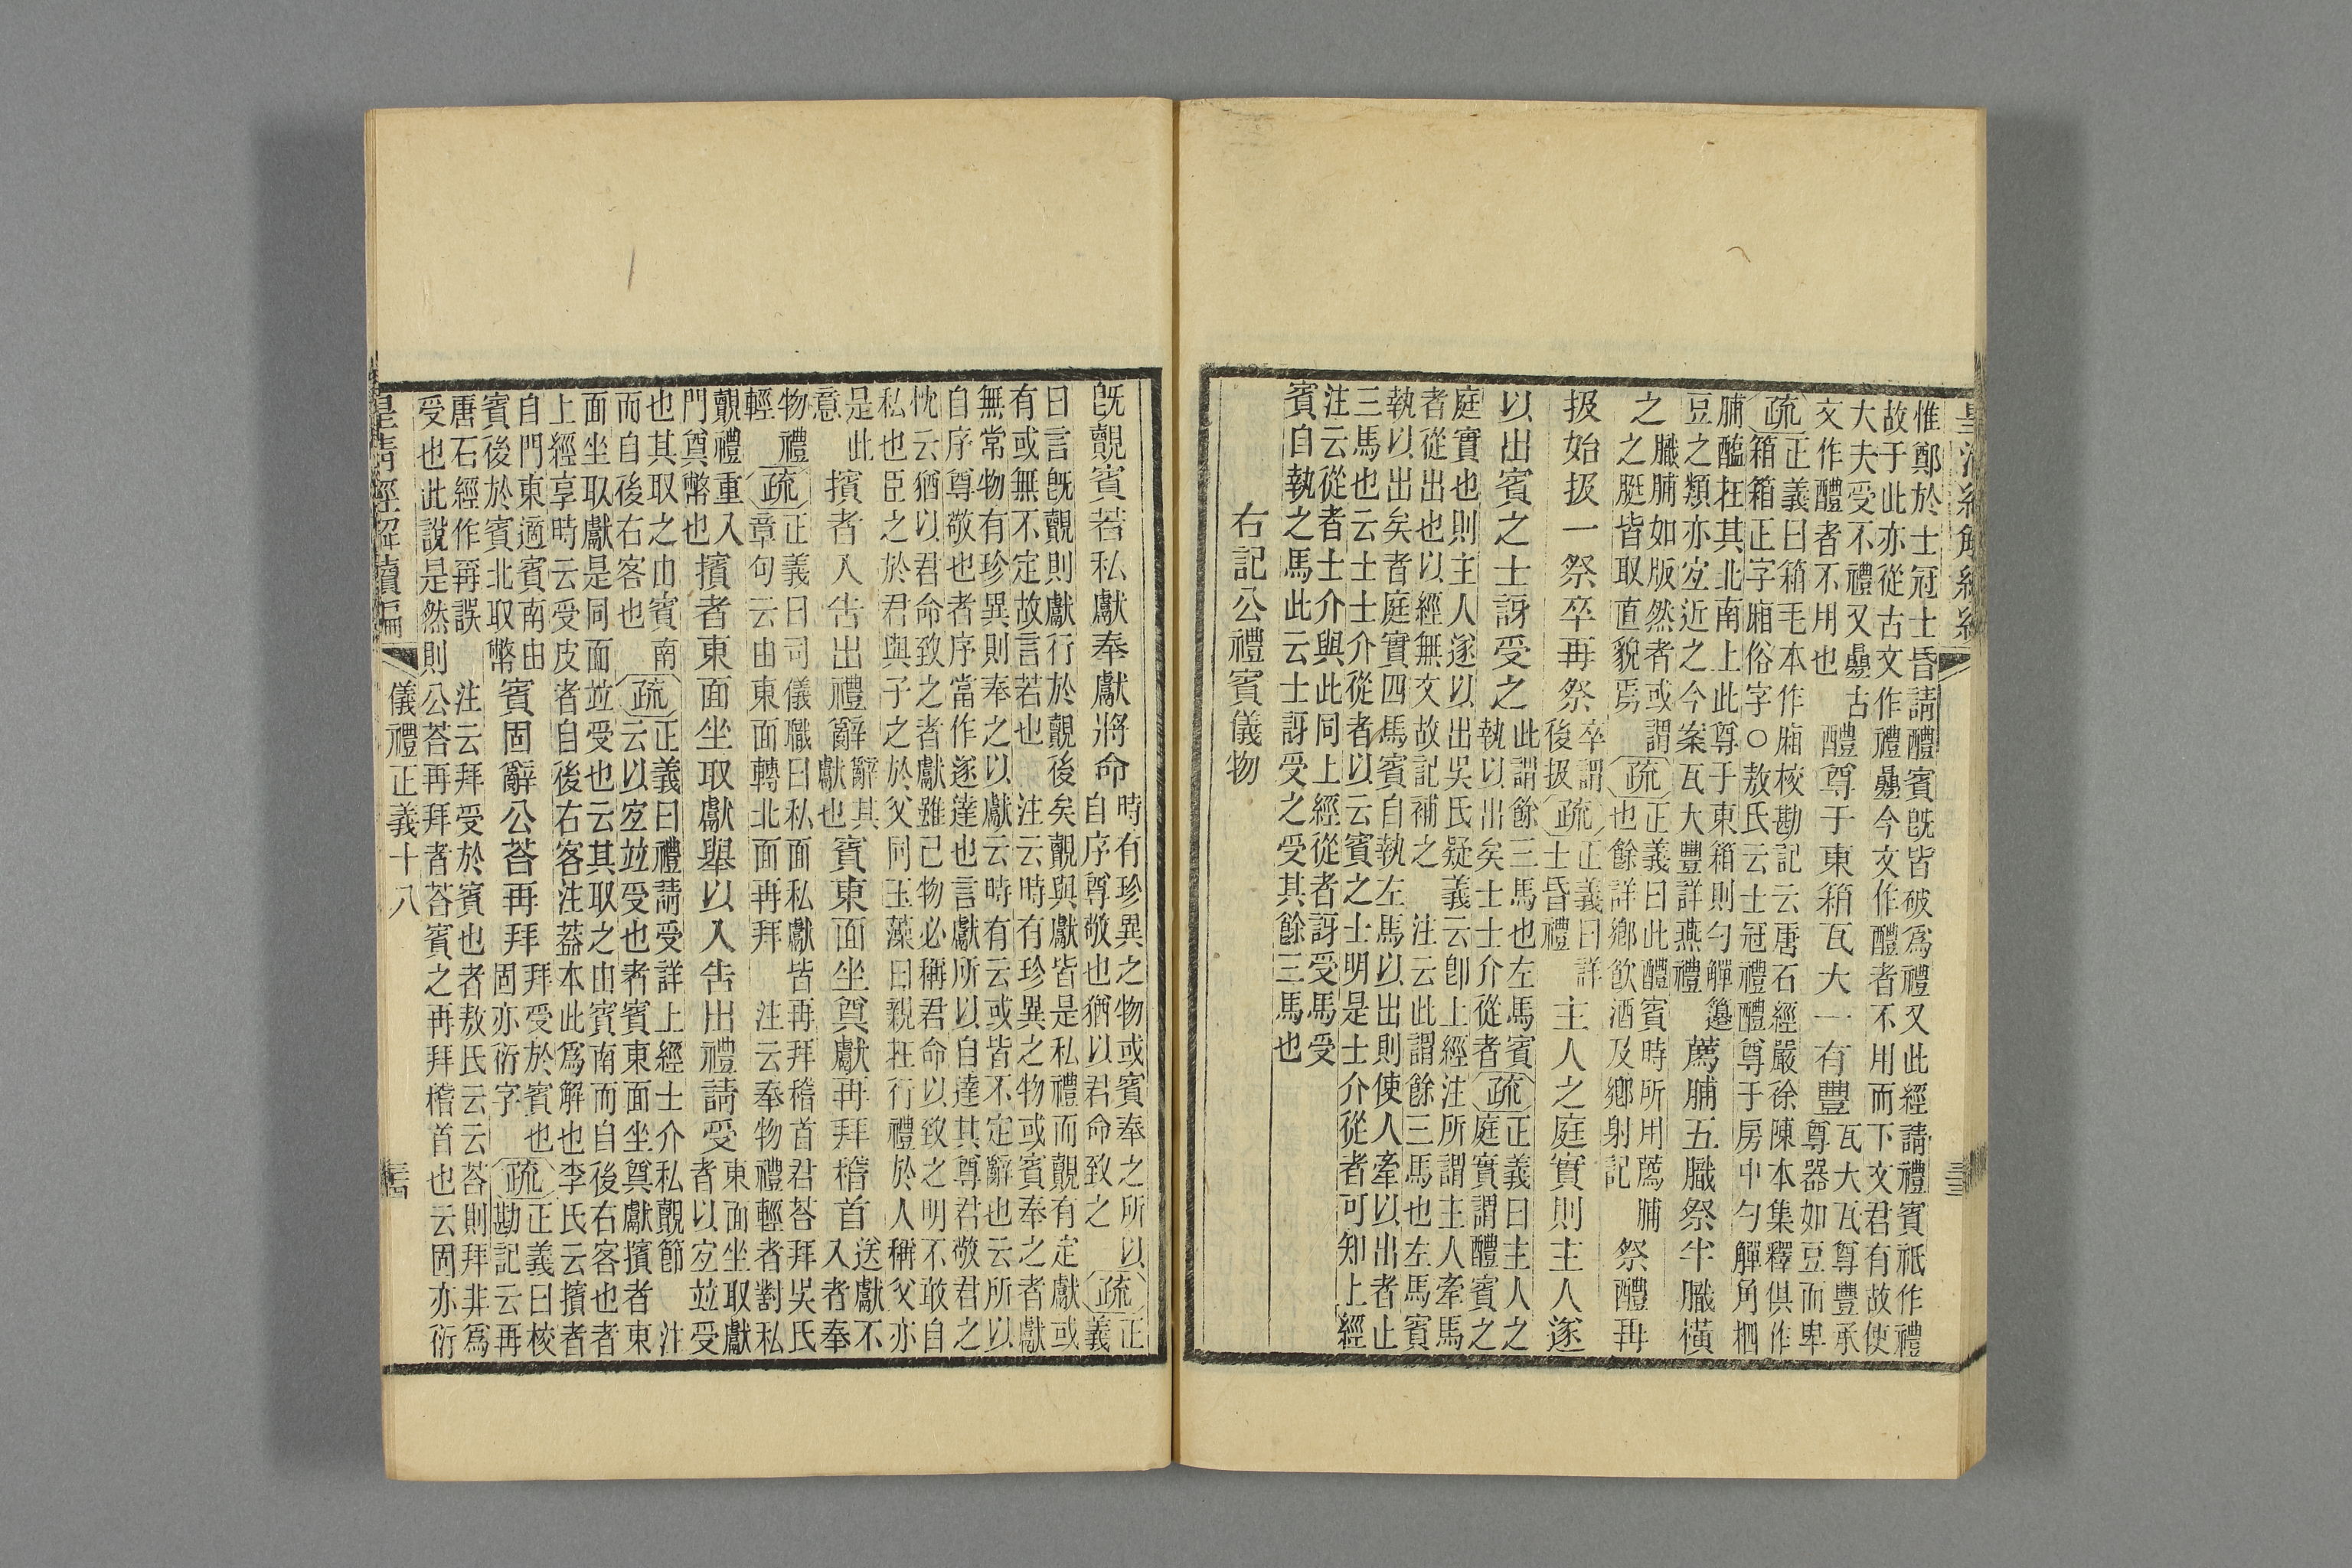 皇清經解續編
三三
惟鄭於士冠士昏請醴賓旣皆破爲禮又此經請禮賓祇作禮
故于此亦從古文作禮㬪今文作醴者不用而下文君有故使
大夫受不禮又㬪古
文作醴者不用也
醴尊于東箱瓦大一有豐
瓦大瓦尊豐承
尊器如豆而卑
疏
正義曰箱毛本作廂校勘記云唐石經嚴徐陳本集釋俱作
箱箱正字廂俗字○敖氏云士冠禮醴尊于房中勺觶角柶
脯醢在其北南上此尊于東箱則勺觶籩
豆之類亦宜近之今案瓦大豐詳燕禮
薦脯五膱祭半膱橫
之
膱脯如版然者或謂
之脡皆取直貌焉
疏
正義曰此醴賓時所用薦脯
也餘詳鄉飲酒及鄉射記
祭醴再
扱始扱一祭卒再祭
卒謂
後扱
疏
正義曰詳
士昏禮
主人之庭實則主人遂
以出賓之士訝受之
此謂餘三馬也左馬賓
執以出矣士士介從者
疏
正義曰主人之
庭實謂醴賓之
庭實也則主人遂以出吳氏疑義云卽上經注所謂主人牽馬
者從出也以經無文故記補之 注云此謂餘三馬也左馬賓
執以出矣者庭實四馬賓自執左馬以出則使人牽以出者止
三馬也云士士介從者以云賓之士明是士介從者可知上經
注云從者士介與此同上經從者訝受馬受
賓自執之馬此云士訝受之受其餘三馬也
右記公禮賓儀物
旣覿賓若私獻奉獻將命
時有珍異之物或賓奉之所以
自序尊敬也猶以君命致之
疏
正
義
曰言旣覿則獻行於覿後矣覿與獻皆是私禮而覿有定獻或
有或無不定故言若也 注云時有珍異之物或賓奉之者獻
無常物有珍異則奉之以獻云時有云或皆不定辭也云所以
自序尊敬也者序當作遂達也言獻所以自達其尊君敬君之
忱云猶以君命致之者獻雖己物必稱君命以致之明不敢自
私也臣之於君與子之於父同玉藻曰親在行禮於人稱父亦
是此
意
擯者入告出禮辭
辭其
獻也
賓東面坐奠獻再拜稽首
送獻不
入者奉
物禮
輕
疏
正義曰司儀職曰私面私獻皆再拜稽首君荅拜吳氏
章句云由東面轉北面再拜 注云奉物禮輕者對私
覿禮重入
門奠幣也
擯者東面坐取獻舉以入告出禮請受
東面坐取獻
者以宜並受
也其取之由賓南
而自後右客也
疏
正義曰禮請受詳上經士介私覿節 注
云以宜並受也者賓東面坐奠獻擯者東
面坐取獻是同面並受也云其取之由賓南而自後右客也者
上經享時云受皮者自後右客注葢本此爲解也李氏云擯者
自門東適賓南由
賓後於賓北取幣
賓固辭公荅再拜
拜受於賓也
固亦衍字
疏
正義曰校
勘記云再
唐石經作再誤 注云拜受於賓也者敖氏云云荅則拜非爲
受也此說是然則公荅再拜者荅賓之再拜稽首也云固亦衍
皇清經解續編
儀禮正義十八
三四